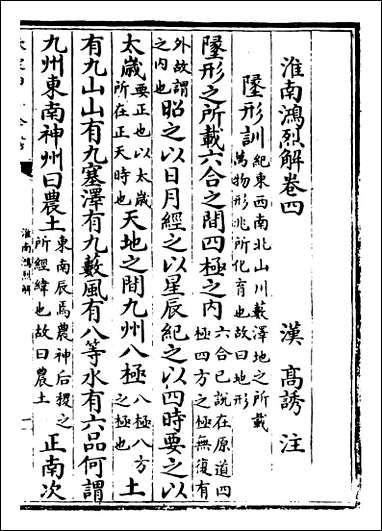 淮南鴻烈解卷四
漢 高誘 注
墬形訓 紀東西南北山川藪澤地之所載萬物形兆所化育也故曰地形
墬形之所載六合之間四極之内 六合已說在原道四極四方之極無復有
外故謂之内也 昭之以日月經之以星辰紀之以四時要之以
太歲 要正也以太歲所在正天時也 天地之閒九州八極 八極八方之極也 土
有九山山有九塞澤有九藪風有八等水有六品何謂
九州東南神州曰農土 東南辰為農神后稷之所經緯也故曰農土 正南次
淮南鴻烈解
一